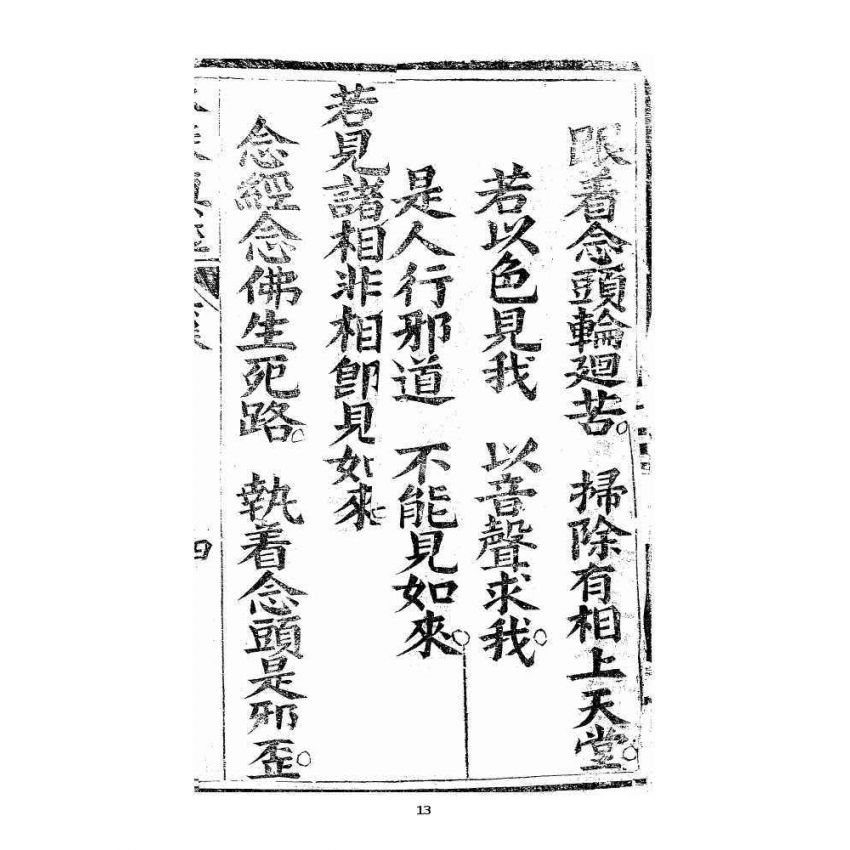 跟着念頭輪廻苦。 掃除有相上天堂。
若以色見我 以音聲求我。
是人行邪道 不能見如來。
若見諸相非相卽見如來
念經念佛生死路。 執着念頭是邪歪。
四
13